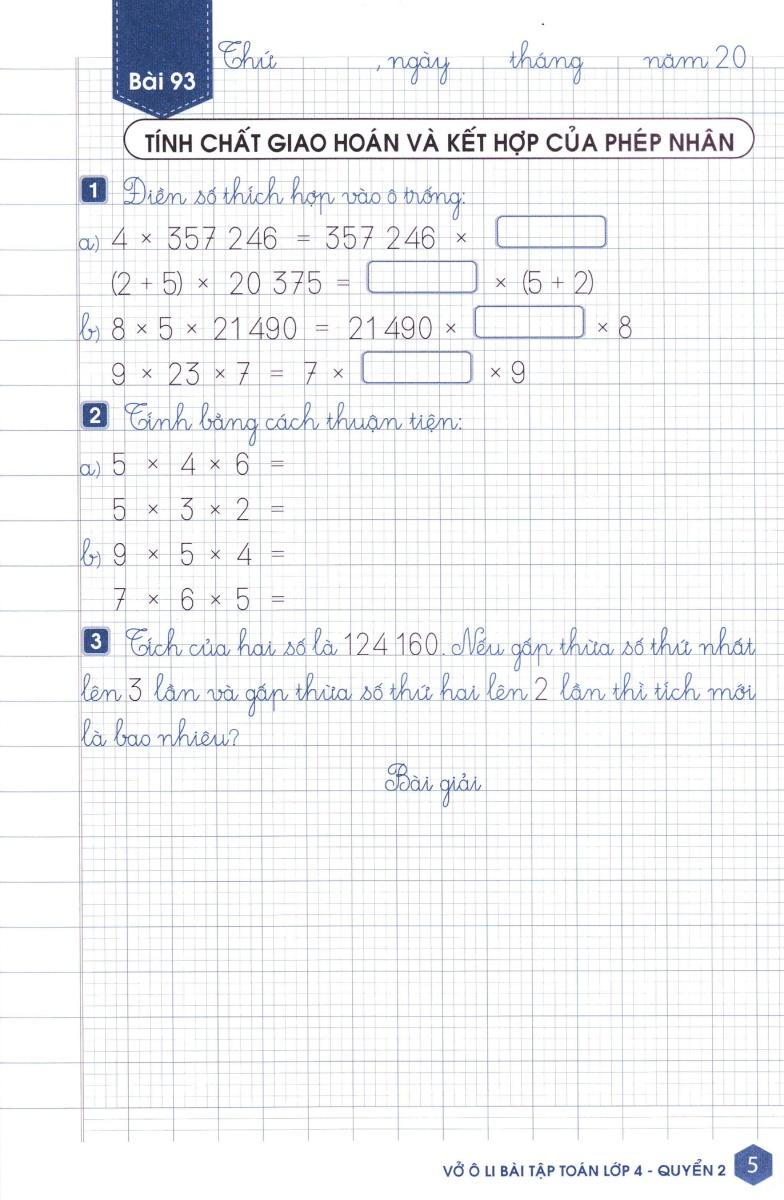 Thứ , ngày tháng năm 20
Bài 93
TÍNH CHẤT GIAO HOÁN VÀ KẾT HỢP CỦA PHÉP NHÂN
1 Điền số thích hợp vào ô trống:
a) 4 × 357 246 = 357 246 ×
(2 + 5) × 20 375 = × (5 + 2)
b) 8 × 5 × 21 490 = 21 490 × × 8
9 × 23 × 7 = 7 × × 9
2 Tính bằng cách thuận tiện:
a) 5 × 4 × 6 =
5 × 3 × 2 =
b) 9 × 5 × 4 =
7 × 6 × 5 =
3 Tích của hai số là 124 160. Nếu gấp thừa số thứ nhất
lên 3 lần và gấp thừa số thứ hai lên 2 lần thì tích mới
là bao nhiêu?
Bài giải
VỞ Ô LI BÀI TẬP TOÁN LỚP 4 - QUYỂN 2 5